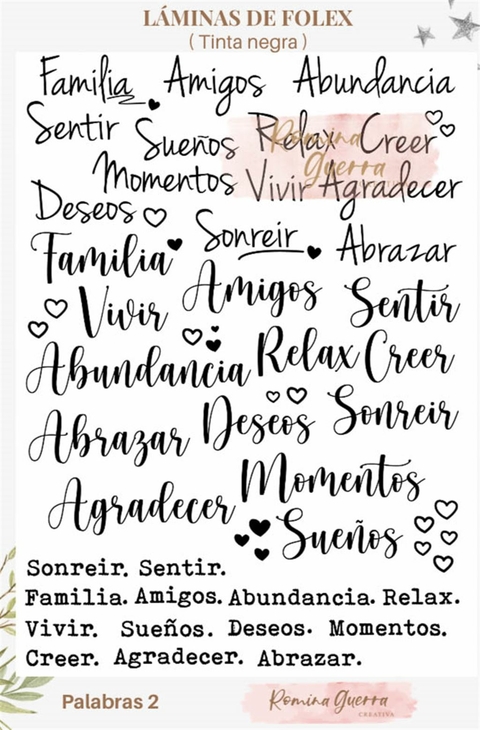 LÁMINAS DE FOLEX
( Tinta negra )
Familia Amigos Abundancia
Sentir Sueños Relax Creer
Romina
Guerra
Momentos Vivir Agradecer
Deseos Sonreir Abrazar
Familia Amigos Sentir
Vivir
Abundancia Relax Creer
Abrazar Deseos Sonreir
Agradecer Momentos
Sueños
Sonreir. Sentir.
Familia. Amigos. Abundancia. Relax.
Vivir. Sueños. Deseos. Momentos.
Creer. Agradecer. Abrazar.
Palabras 2
Romina Guerra
CREATIVA